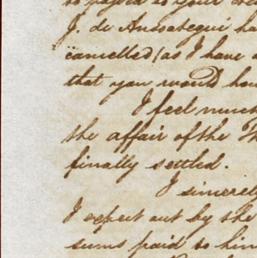 so payed to your
J. de Anssategui ha
cancelled (as I have a
that you would hav
I feel much
the affair of the
finally settled.
I sincerely
I expect out by the
sums paid to him